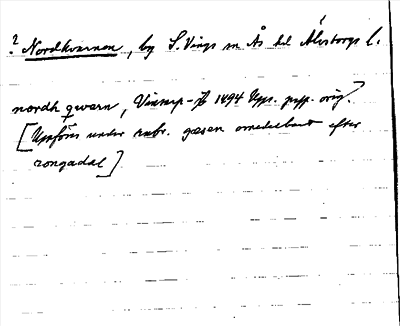 ? Nordkvarnen, by S. Vings sn Ås hd Älvsborgs l.
nordh qwarn, Vinsarp- 1494 Upps. papp. orig.
[Uppföres under rubr. gæsen omedelbart efter
rongadal]